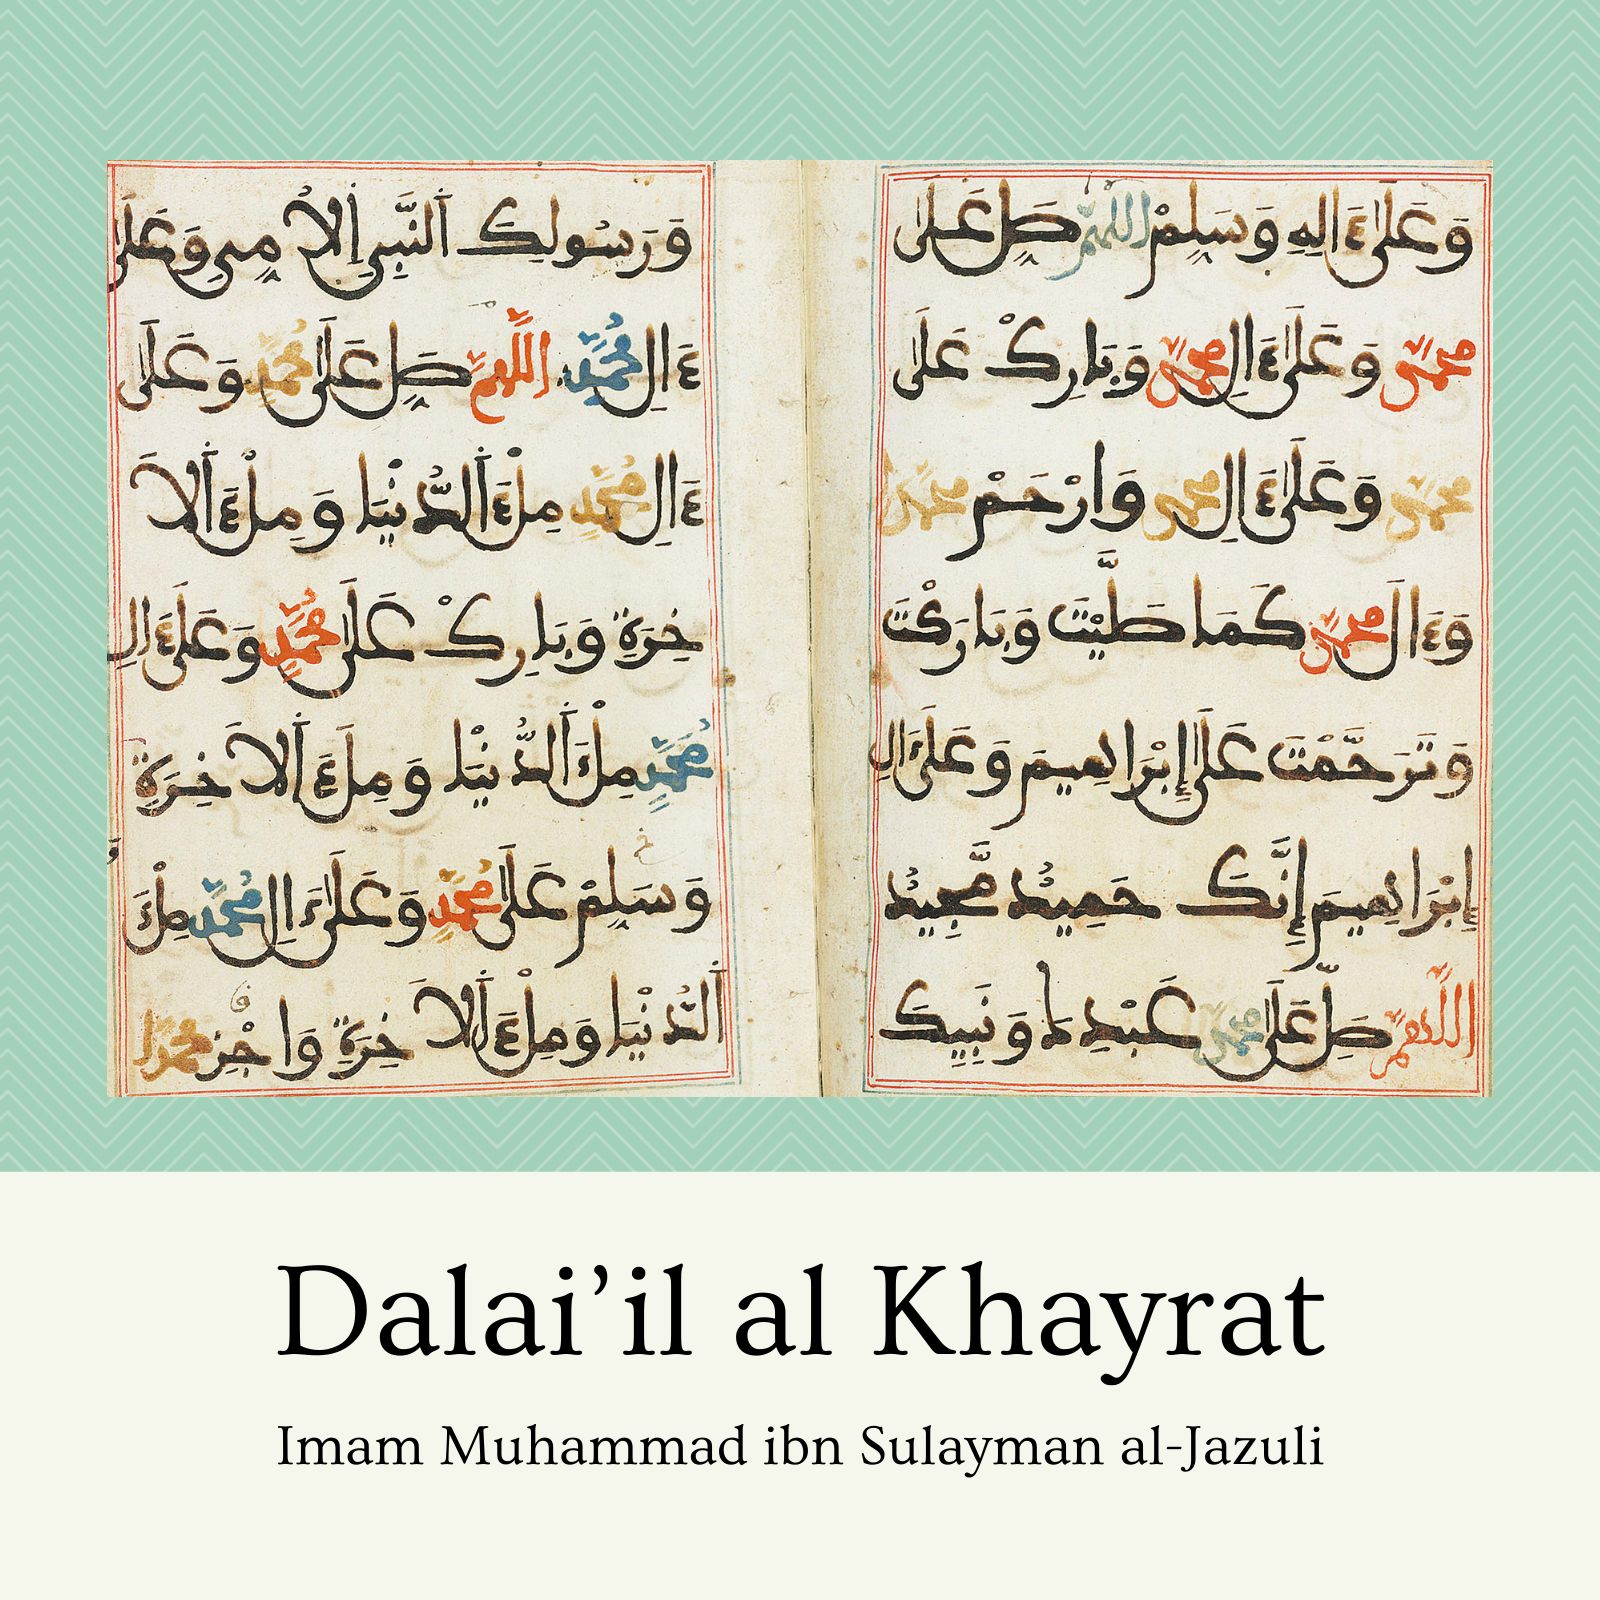 وَعَلَىٰ ءَالِهِ وَسَلِّمْ اللَّهُمَّ صَلِّ عَلَىٰ
مُحَمَّدٍ وَعَلَىٰ ءَالِ مُحَمَّدٍ وَبَارِكْ عَلَىٰ
مُحَمَّدٍ وَعَلَىٰ ءَالِ مُحَمَّدٍ وَارْحَمْ مُحَمَّدًا
وَءَالَ مُحَمَّدٍ كَمَا صَلَّيْتَ وَبَارَكْتَ
وَتَرَحَّمْتَ عَلَىٰ إِبْرَاهِيمَ وَعَلَىٰ ءَالِ
إِبْرَاهِيمَ إِنَّكَ حَمِيدٌ مَّجِيدٌ
اللَّهُمَّ صَلِّ عَلَىٰ مُحَمَّدٍ عَبْدِكَ وَنَبِيِّكَ
وَرَسُولِكَ النَّبِيِّ الْأُمِّيِّ وَعَلَىٰ
ءَالِ مُحَمَّدٍ اللَّهُمَّ صَلِّ عَلَىٰ مُحَمَّدٍ وَعَلَىٰ
ءَالِ مُحَمَّدٍ مِلْءَ الدُّنْيَا وَمِلْءَ الْأ
خِرَةِ وَبَارِكْ عَلَىٰ مُحَمَّدٍ وَعَلَىٰ ءَالِ
مُحَمَّدٍ مِلْءَ الدُّنْيَا وَمِلْءَ الْأخِرَةِ
وَسَلِّمْ عَلَىٰ مُحَمَّدٍ وَعَلَىٰ ءَالِ مُحَمَّدٍ مِلْءَ
الدُّنْيَا وَمِلْءَ الْأخِرَةِ وَاجْزِ مُحَمَّدًا
Dalai’il al Khayrat
Imam Muhammad ibn Sulayman al-Jazuli